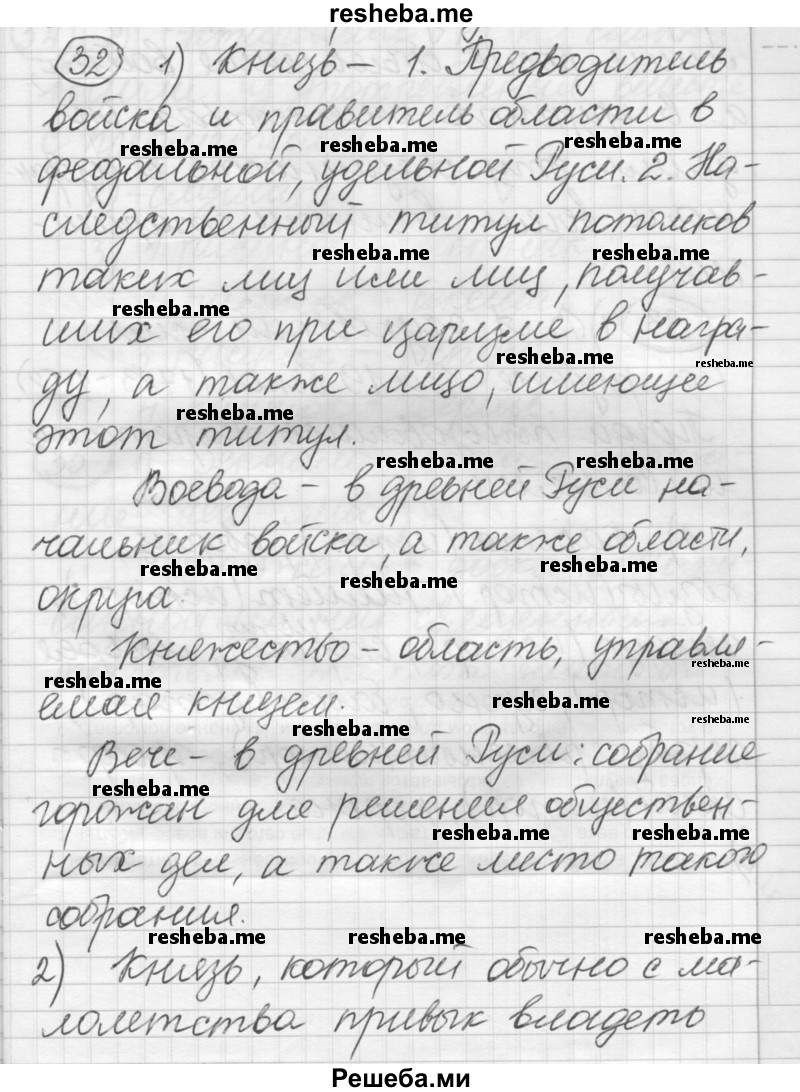 resheba.me
32 1) Князь – 1. Предводитель
войска и правитель области в
resheba.me resheba.me resheba.me
феодальной, удельной Руси. 2. На-
следственный титул потомков
resheba.me resheba.me
таких лиц или лиц, получав-
resheba.me
ших его при царизме в награ-
resheba.me resheba.me
ду, а также лицо, имеющее
resheba.me
этот титул.
resheba.me resheba.me
Воевода – в древней Руси на-
чальник войска, а также области,
resheba.me resheba.me resheba.me
округа.
Княжество – область, управля-
resheba.me
resheba.me
емая князем.
resheba.me resheba.me
resheba.me
Вече – в древней Руси: собрание
resheba.me
горожан для решения обществен-
resheba.me resheba.me
ных дел, а также место такого
собрания.
resheba.me resheba.me resheba.me
2) Князь, который обычно с ма-
лолетства привык владеть
Решеба.ми